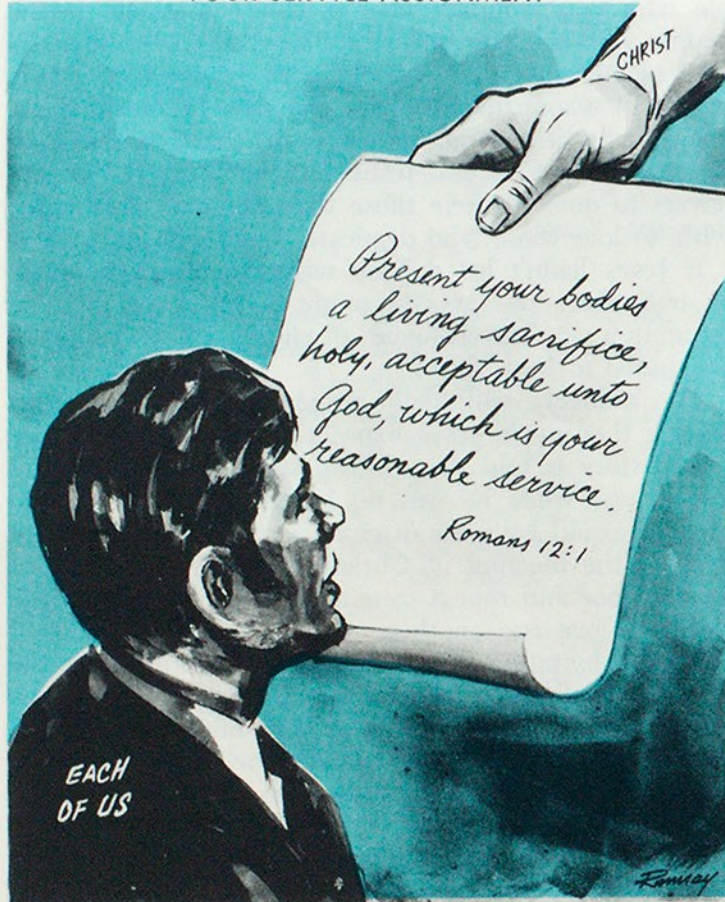 YOUR SERVICE ASSIGNMENT
CHRIST
Present your bodies
a living sacrifice,
holy, acceptable unto
God, which is your
reasonable service.
Romans 12:1
EACH
OF US
Ramsay